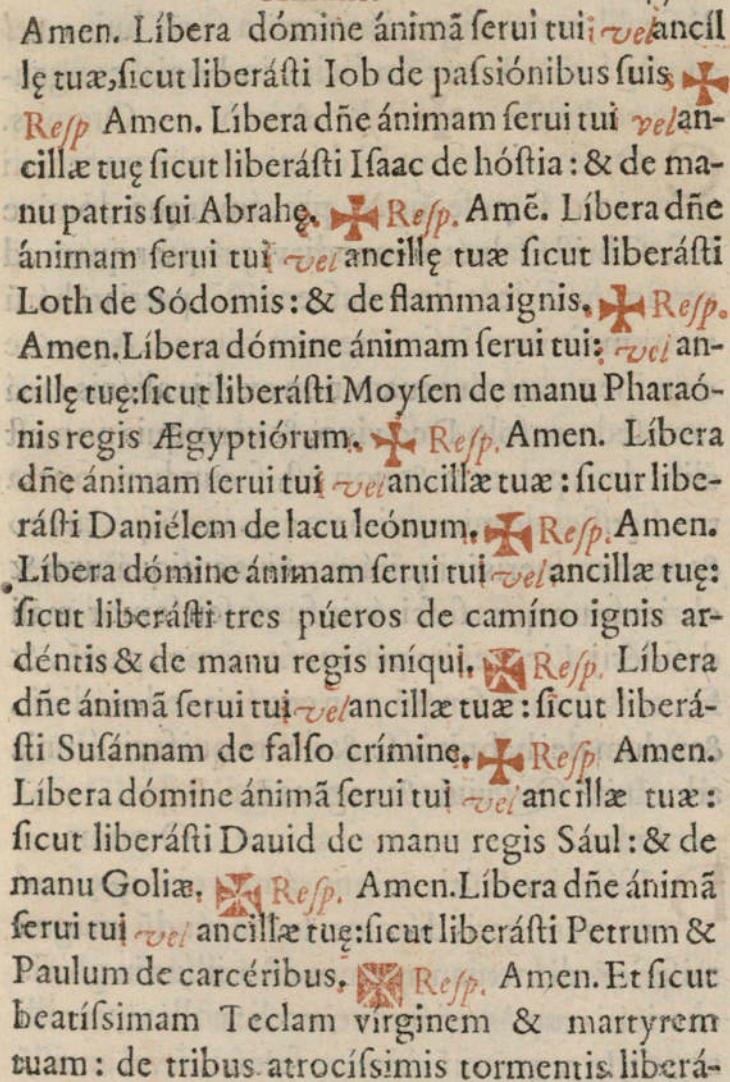 Amen. Líbera dómine ánimã ſerui tui; vel ancíl
lę tuæ, ſicut liberáſti Iob de paſsiónibus ſuis, ✠
Reſp Amen. Líbera dñe ánimam ſerui tui vel an-
cillæ tuę ſicut liberáſti Iſaac de hóſtia: & de ma-
nu patris ſui Abrahę. ✠ Reſp. Amẽ. Líbera dñe
ánimam ſerui tui vel ancillę tuæ ſicut liberáſti
Loth de Sódomis: & de flamma ignis. ✠ Reſp.
Amen. Líbera dómine ánimam ſerui tui: vel an-
cillę tuę: ſicut liberáſti Moyſen de manu Pharaó-
nis regis Ægyptiórum. ✠ Reſp. Amen. Líbera
dñe ánimam ſerui tui vel ancillæ tuæ: ſicur libe-
ráſti Daniélem de lacu leónum. ✠ Reſp. Amen.
Líbera dómine ánimam ſerui tui vel ancillæ tuę:
ſicut liberáſti tres púeros de camíno ignis ar-
déntis & de manu regis iníqui. ✠ Reſp. Líbera
dñe ánimã ſerui tui vel ancillæ tuæ: ſicut liberá-
ſti Suſánnam de falſo crímine. ✠ Reſp Amen.
Líbera dómine ánimã ſerui tui vel ancillæ tuæ:
ſicut liberáſti Dauid de manu regis Sául: & de
manu Goliæ. ✠ Reſp. Amen. Líbera dñe ánimã
ſerui tui vel ancillæ tuę: ſicut liberáſti Petrum &
Paulum de carcéribus. ✠ Reſp. Amen. Et ſicut
beatíſsimam Teclam vírginem & martyrem
tuam: de tribus atrocíſsimis tormentis liberá-